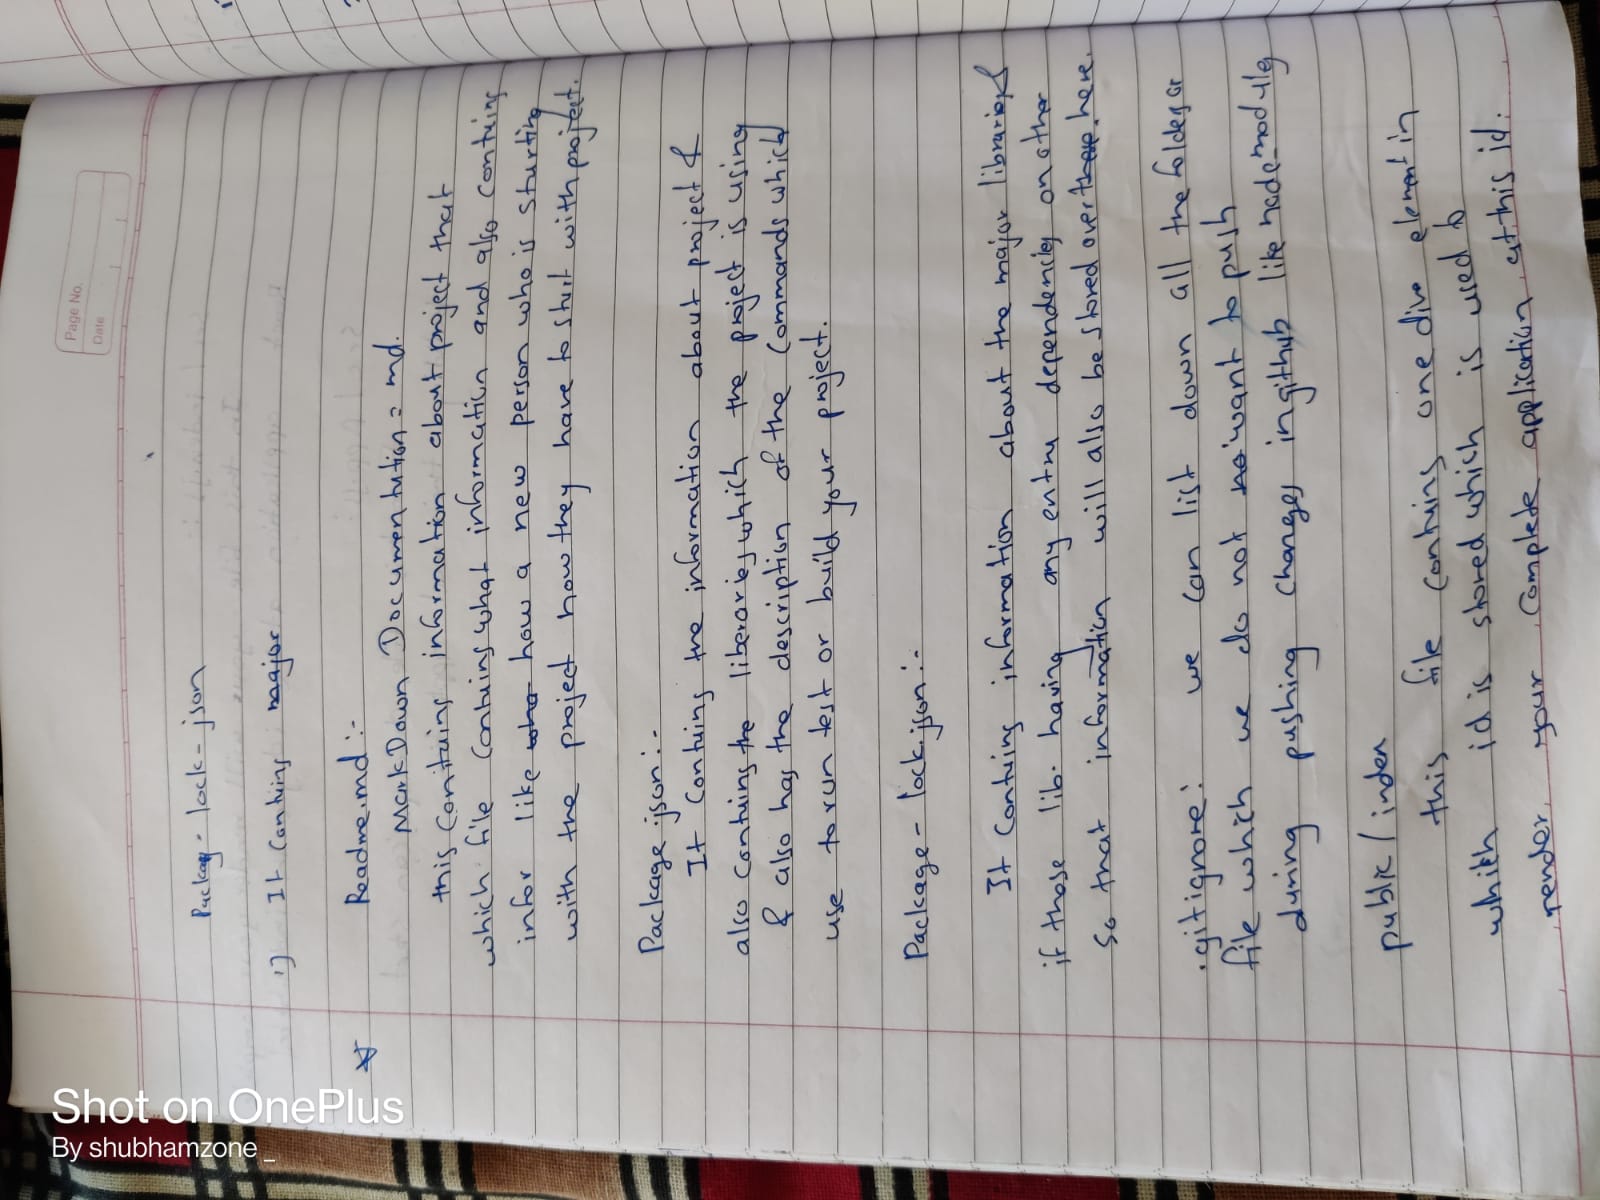 Page No.
Date
Package - lock - json
1) It Contains major
Readme.md :-
MarkDown Documentation = md.
this Contains information about project that
which file Contains what information and also contains
infor like how a new person who is starting
with the project how they have to start with project.
Package.json :-
It Contains the information about project &
also contains the liberaries which the project is using
& also has the description of the Commands which
use to run test or build your project.
Package - lock.json :-
It Contains information about the major libraries &
if those lib. having any extra dependencies on other
so that information will also be stored over here.
.gitignore: we can list down all the folders or
file which we do not want to push
during pushing changes in github like node_modules
public / index
this file contains one div element in
which id is stored which is used to
render your complete application at this id.
Shot on OnePlus
By shubhamzone _